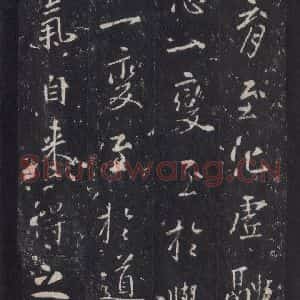 至虛
一變至於
一變至於道
氣自來得之
Shufawang.CN